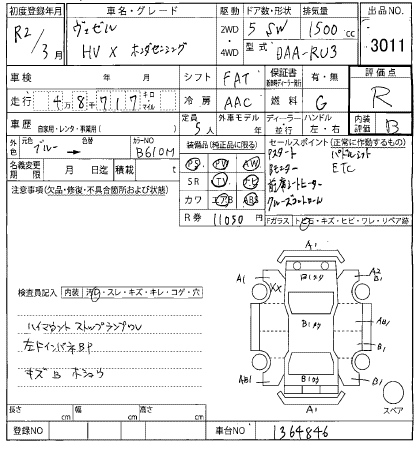 初度登録年月 車名・グレード 駆動 ドア数/形状 排気量 出品NO.
R2/3月 ヴェゼル 2WD 5 SW 1500 cc 3011
HV X ホンダセンシング 4WD 型式 DAA-RU3
車検 年 月 シフト FAT 保証書 有・無 評価点
走行 4万8千717 キロ マイル 冷房 AAC 燃料 G R
車歴 自家用・レンタ・事業用( ) 定員 5人 外車モデル 年 ディーラー 並行 ハンドル 左・右 内装評価 B
外色 元色 ブルー 色替 カラーNO B610M
装備品(純正品に限る) セールスポイント(正常に作動するもの)
名義変更期限 月 日迄 積載 t
PS PW AW
SR TV ナビ
カワ エアB ABS
R券 11050円
Pスタート パドルシフト
Bモニター ETC
前席シートヒーター
クルーズコントロール
注意事項(欠品・修復・不具合箇所および状態)
Fガラス トビ石・キズ・ヒビ・ワレ・リペア跡
検査員記入 内装 汚れ・スレ・キズ・キレ・コゲ・穴
ハイマウントストップランプワレ
左ドインパネBP
キズB ホショウ
A1
A1 XX B1 A2 B1
B1 AB1
AB1 B1 B1
A1 スペア
長さ cm 幅 cm 高さ cm
登録NO 車台NO 1364846